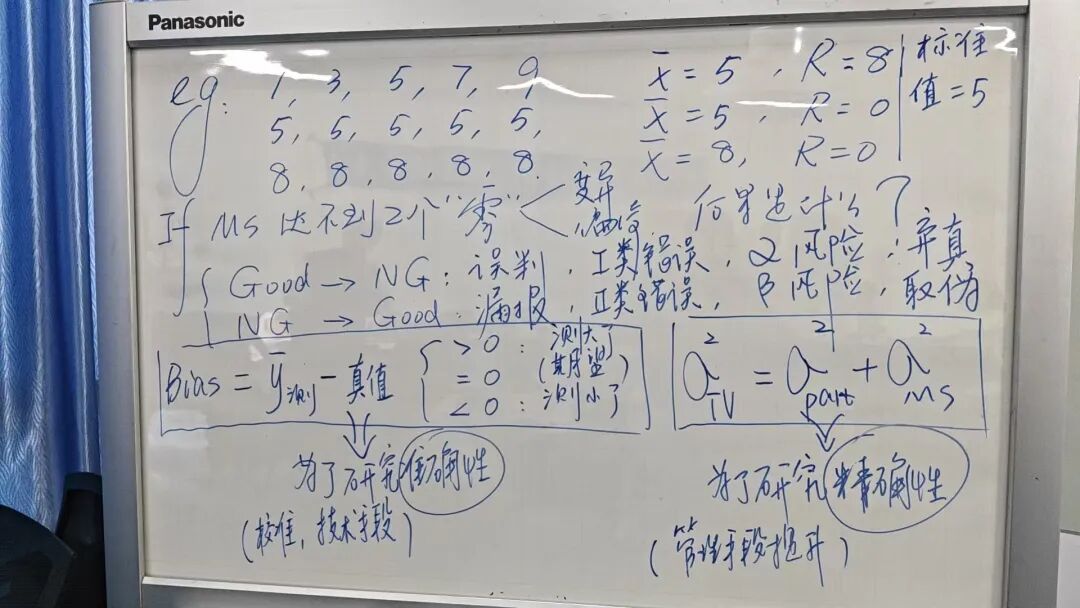 Panasonic
eg: 1, 3, 5, 7, 9, x̄ = 5, R = 8 标准
5, 5, 5, 5, 5, x̄ = 5, R = 0 值 = 5
8, 8, 8, 8, 8. x̄ = 8, R = 0
If MS达不到2个"零" < 变异 偏倚 何果是什么?
Good → NG: 误判, I类错误, α风险: 弃真
NG → Good: 漏报, II类错误, β风险, 取伪
Bias = ȳ测 - 真值 { > 0: 测大了
= 0 (期望)
< 0: 测小了
σ²TV = σ²part + σ²MS
为了研究准确性
(校准, 技术手段)
为了研究精确性
(管理手段提升)